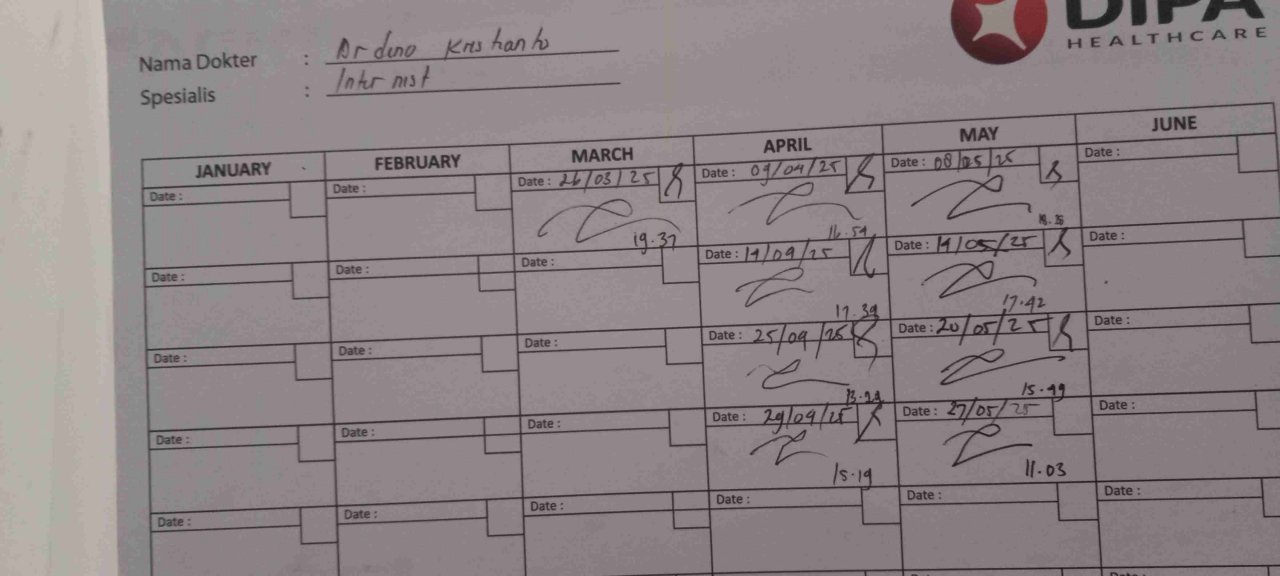 DIPA
HEALTHCARE
Nama Dokter : Dr deno Kristianto
Spesialis : Internist
JANUARY FEBRUARY MARCH APRIL MAY JUNE
Date : Date : Date : 26/03/25 Date : 09/04/25 Date : 08/05/25 Date :
19.37 16.59
Date : Date : Date : Date : 14/04/25 Date : 14/05/25 Date :
17.39 17.42
Date : Date : Date : Date : 25/04/25 Date : 20/05/25 Date :
15.49
Date : Date : Date : Date : 29/04/25 Date : 27/05/25 Date :
15.19 11.03
Date : Date : Date : Date : Date : Date :
Date :